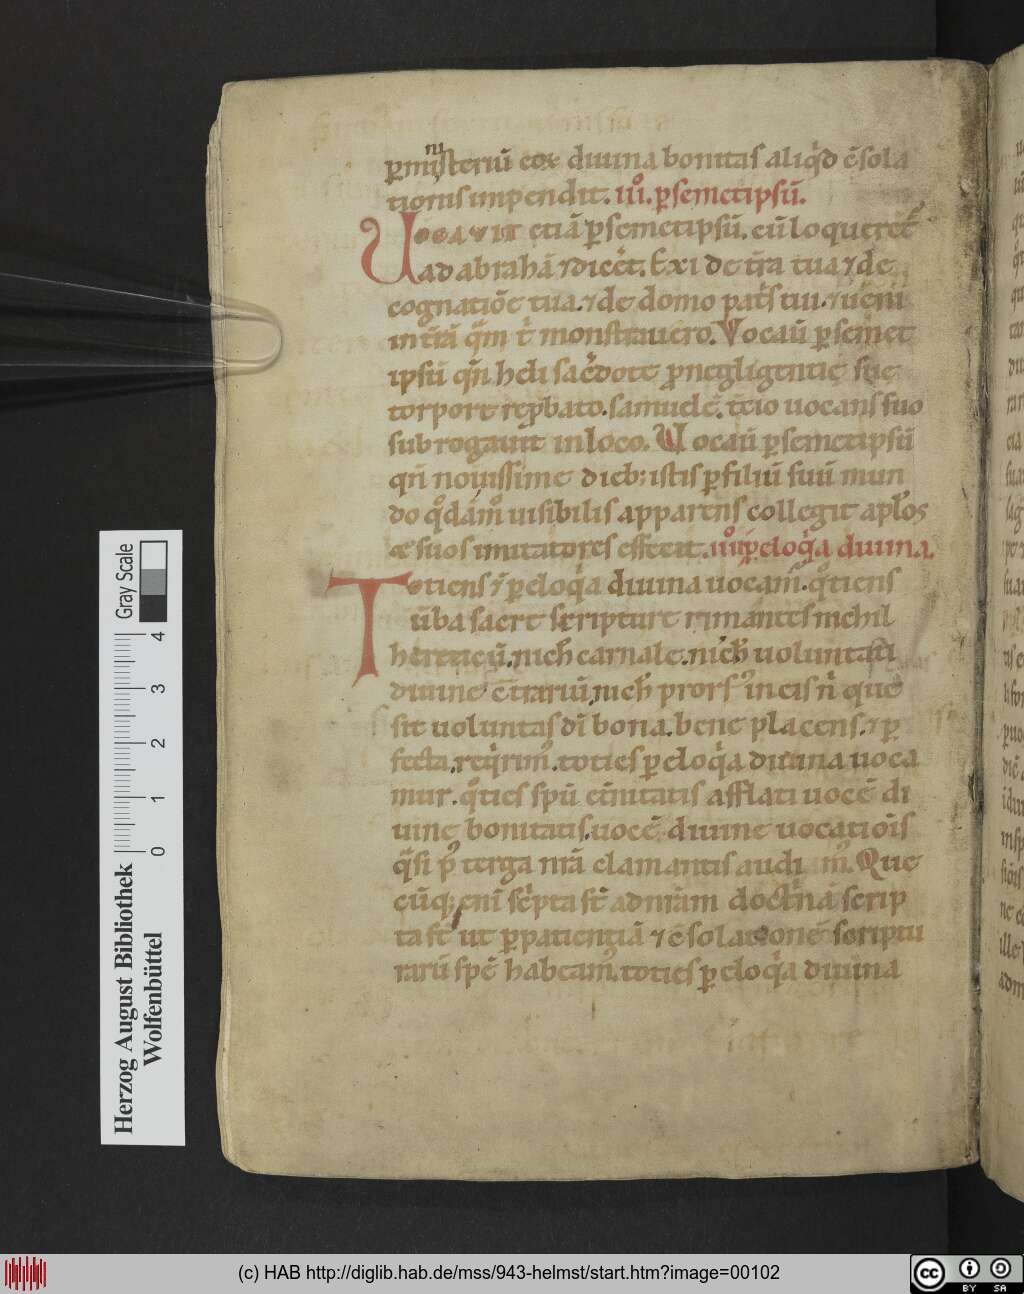 ni
p̱misteriū eoꝝ diuina bonitas aliq̍d ꝯ̄sola
tionis impendit. iii̊. p̱semetipsū.
Uocauit etiā p̱semetipsū. cū loqueret᷑
ad abrahā ⁊ dicēt. Exi de t̄ra tua ⁊ de
cognatiōe tua. ⁊ de domo pat̍s tui. ⁊ ueni
in t̄rā q̄m t̍ monstrauero. Vocau̅ p̱semet
ipsū qn̄ heli sac̄dote ꝓ negligentie sue
torpore rep̱bato. samuelē. t̄cio uocans suo
subrogauit in loco. Uocau̅ p̱semetipsū
qn̄ nouissime dieb; istis p̱ filiū suū mun
do q̊dām̊ uisibilis apparens collegit apl̄os
æ suos imitatores effecit. iiii̊. p̱ eloq̍a diuina.
Totiens ⁊ p̱ eloq̍a diuina uocam᷒. q̊tiens
ūba sacre scripture rimantes nichil
hereticū, nich̄ carnale. nich̄ uoluntati
diuine ꝯ̄trariū, nich̄ prors᷒ in eis n̄ que
sit uoluntas dī bona. bene placens. ⁊ p̱
fecta. req̍rim᷒. toties p̱ eloq̍a diuina uoca
mur. q̊ties spū et̄nitatis afflati uocē di
uine bonitatis. uocē diuine uocatiōis
q̄si p᷒ terga nr̄ā clamantis audim᷒. Que
cūq; eni̅ sc̍pta st̄ ad nr̄am doct̍nā scrip
ta st̄ ut p̱ patientiā ⁊ ꝯ̄solationē scriptu
rarū spē habeam᷒. toties p̱ eloq̍a diuina
Gray Scale
4 3 2 1 0
Herzog August Bibliothek
Wolfenbüttel
(c) HAB http://diglib.hab.de/mss/943-helmst/start.htm?image=00102
cc BY SA